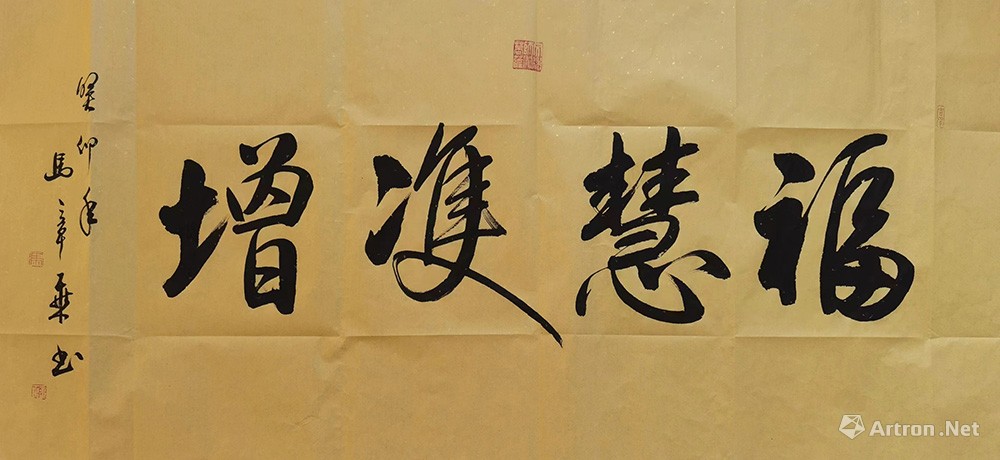 福慧雙增
癸卯年
馬 书
Artron.Net